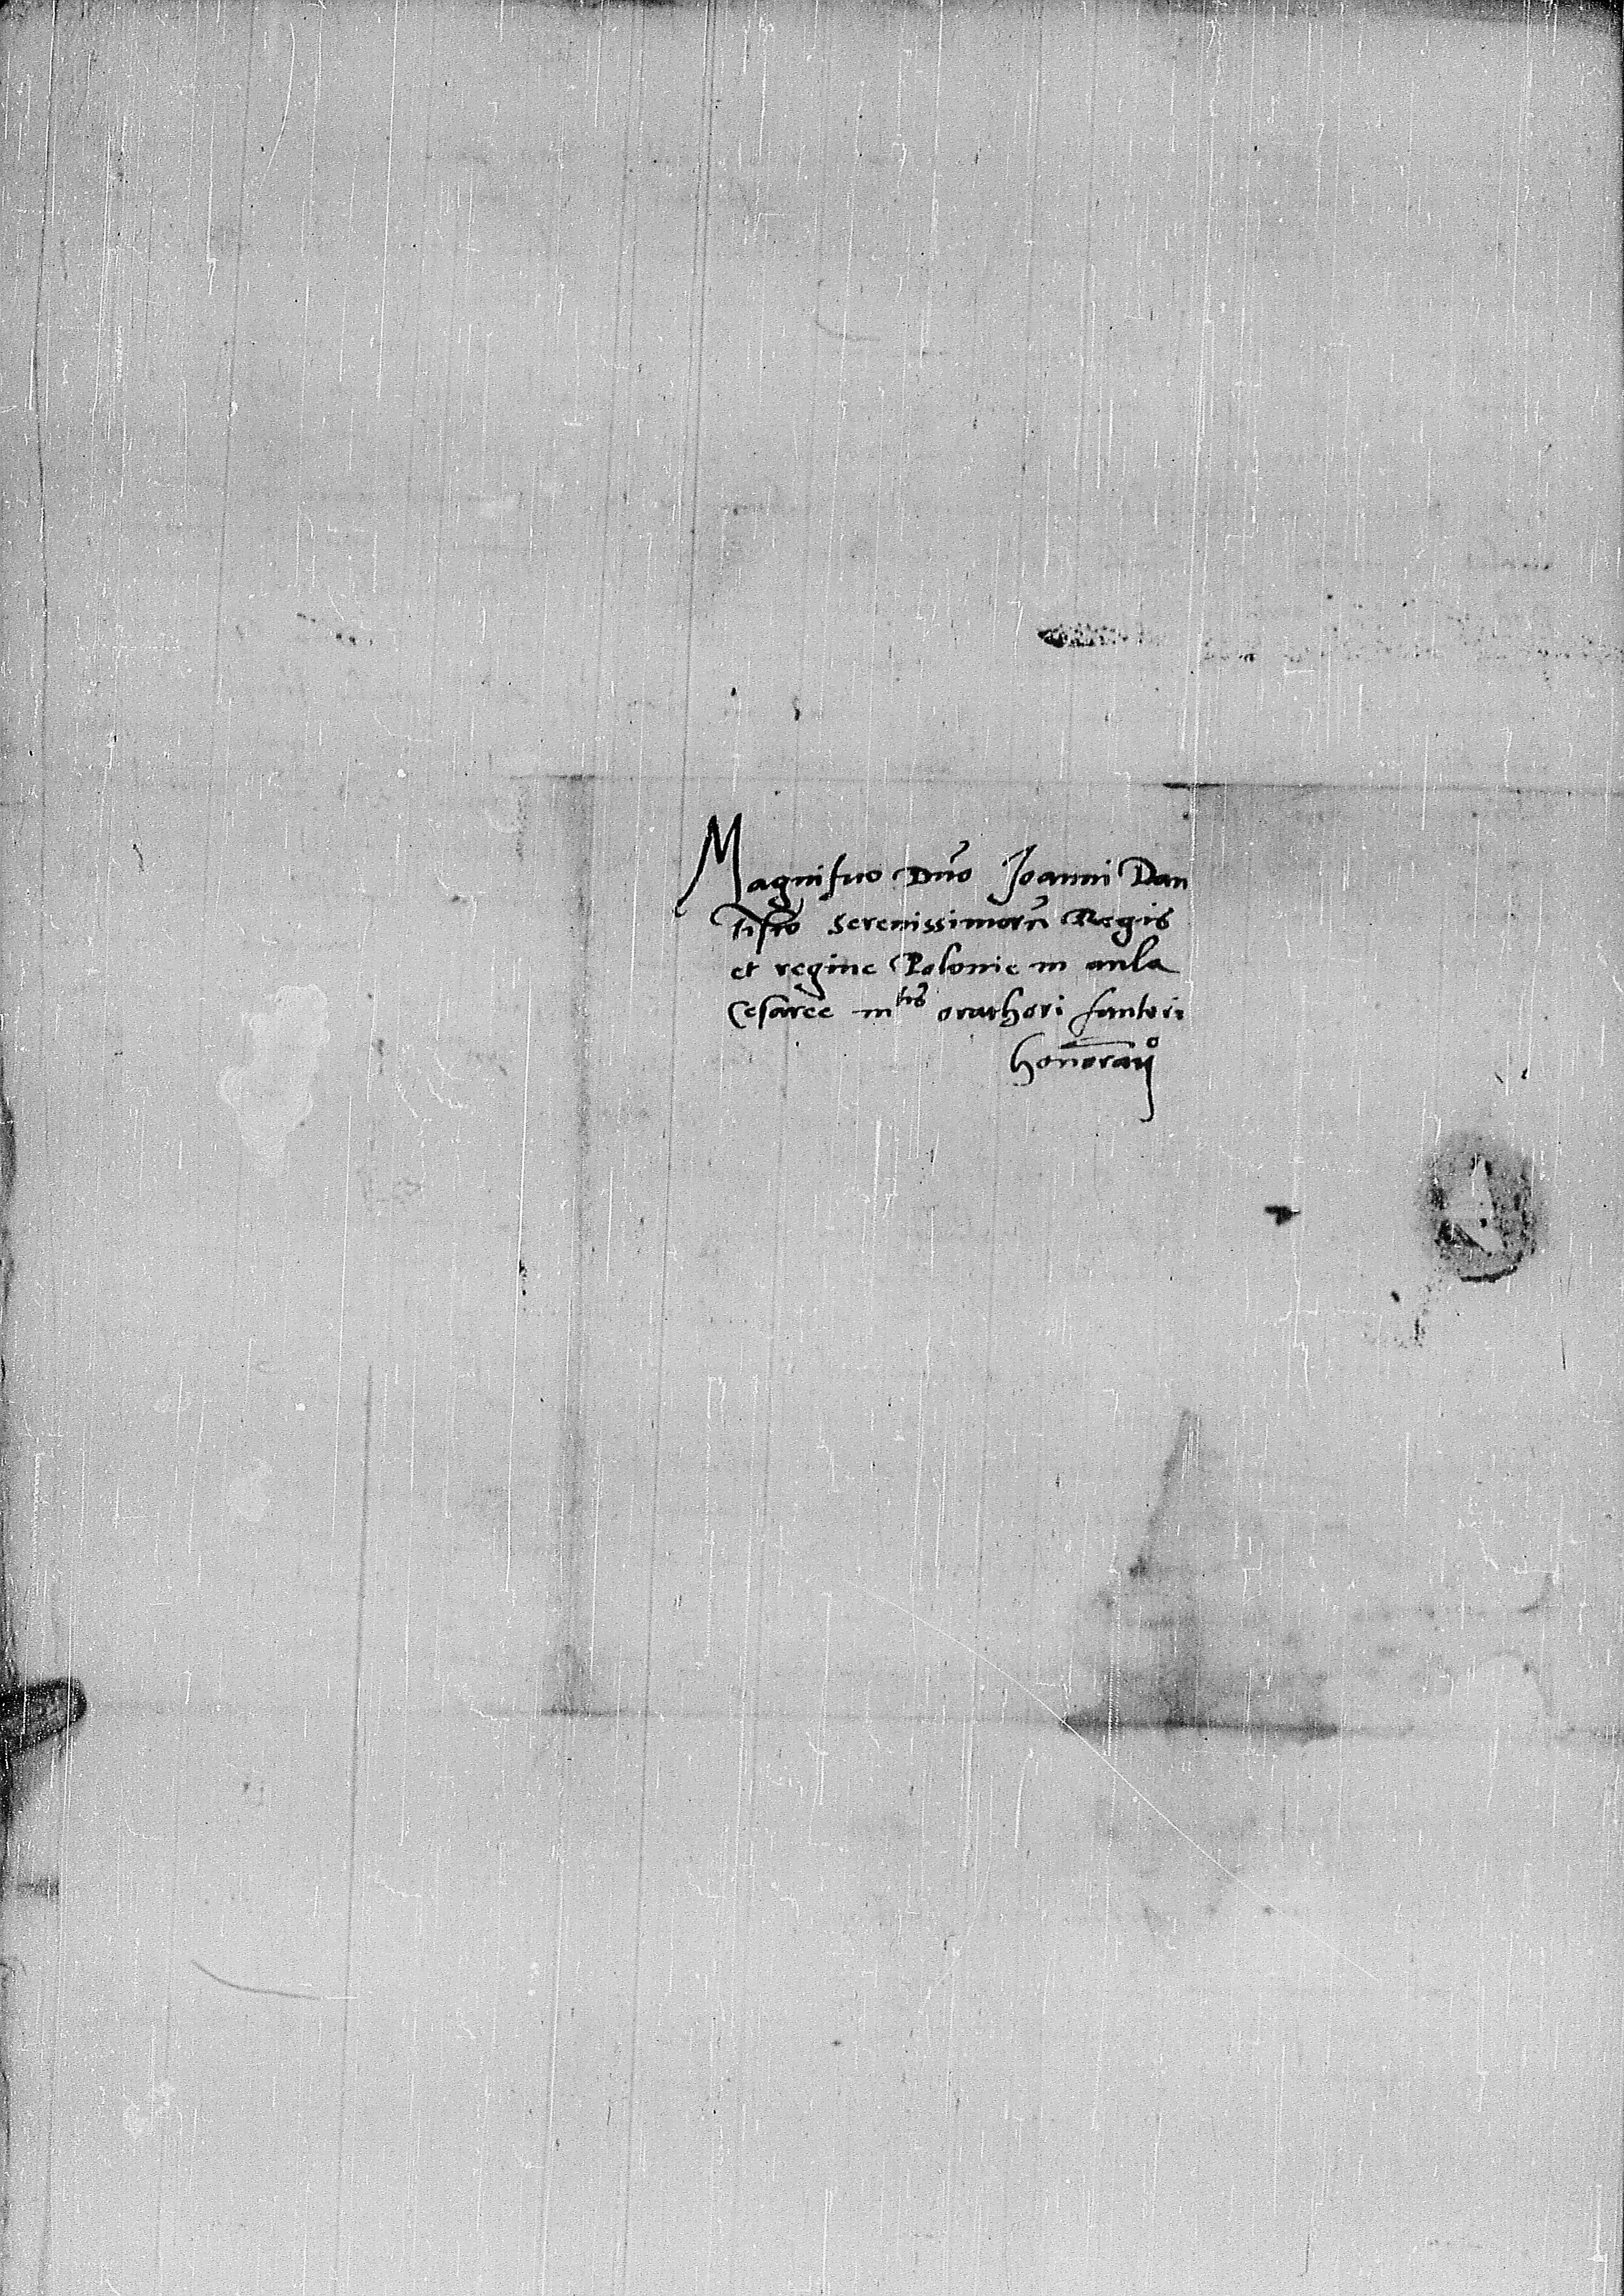 Magnifico Dno Joanni Dan
tisco Serenissimorū Regis
et regine Polonie in aula
Cesaree mtis orathori fautori
honoraņ°